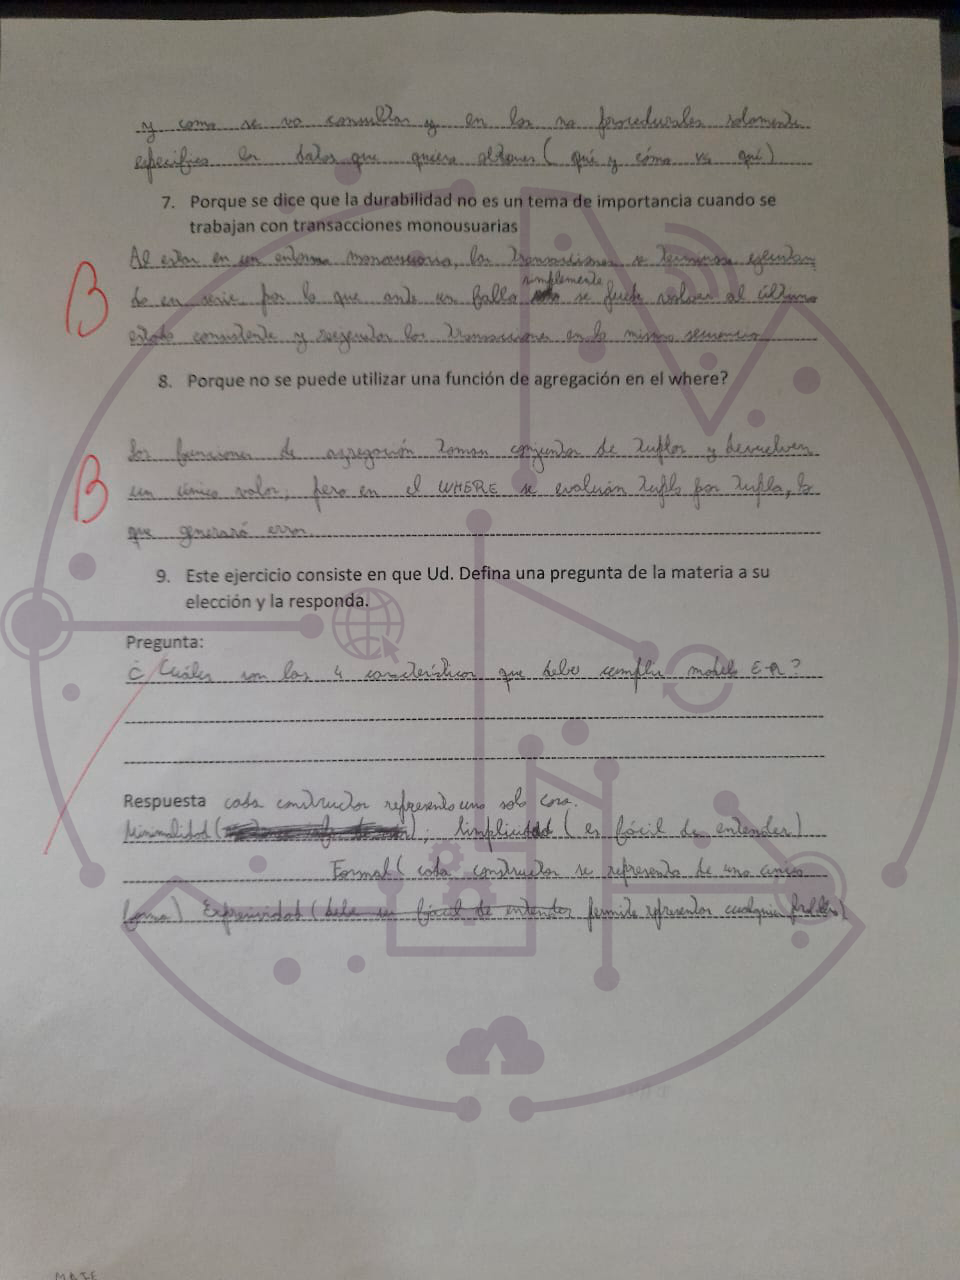 y como se va consultar y en los no procedurales solamente
especifica los datos que quiere obtener ( qué y cómo vs qué )
7. Porque se dice que la durabilidad no es un tema de importancia cuando se
trabajan con transacciones monousuarias
Al estar en un entorno monousuario, las transacciones se terminan ejecutan
do en serie por lo que ante un falla simplemente se puede volver al último
estado consistente y reejecutar las transacciones en la misma secuencia
B
8. Porque no se puede utilizar una función de agregación en el where?
Las funciones de agregación toman conjuntos de tuplas y devuelven
un único valor, pero en el WHERE se evalúan tupla por tupla, lo
que generará error.
B
9. Este ejercicio consiste en que Ud. Defina una pregunta de la materia a su
elección y la responda.
Pregunta:
¿ Cuáles son las 4 características que debe cumplir modelo E-R ?
Respuesta cada constructor representa una sola cosa.
Minimalidad ( ), Simplicidad ( es fácil de entender )
Formal ( cada constructor se representa de una única
forma ) Expresividad ( debe ser fácil de entender permite representar cualquier )